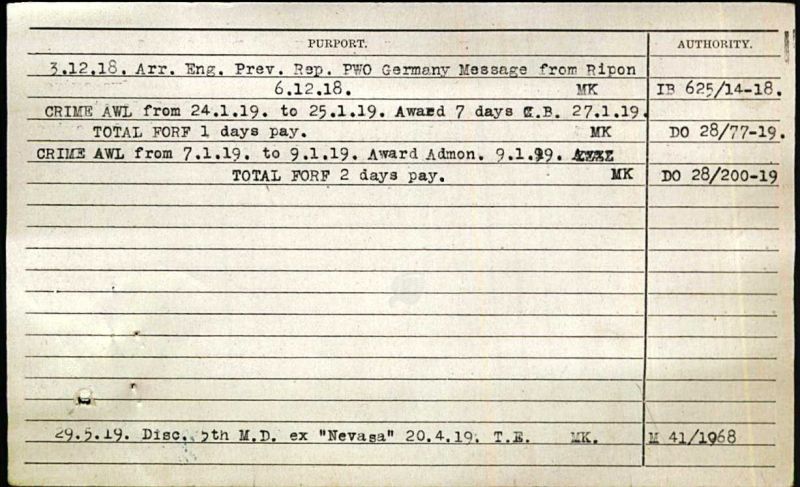 PURPORT. AUTHORITY.
3.12.18. Arr. Eng. Prev. Rep. PWO Germany Message from Ripon
6.12.18. MK IB 625/14-18.
CRIME AWL from 24.1.19. to 25.1.19. Award 7 days C.B. 27.1.19.
TOTAL FORF 1 days pay. MK DO 28/77-19.
CRIME AWL from 7.1.19. to 9.1.19. Award Admon. 9.1.19.
TOTAL FORF 2 days pay. MK DO 28/200-19
29.5.19. Disc. 5th M.D. ex "Nevasa" 20.4.19. T.E. MK. M 41/1968